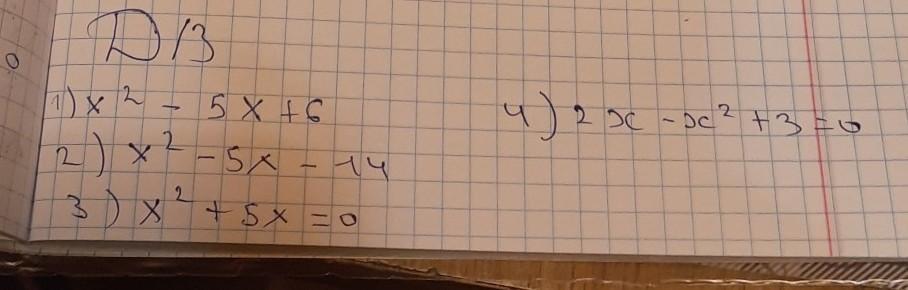 Д/З
1) x² - 5x + 6
2) x² - 5x - 14
3) x² + 5x = 0
4) 2x - x² + 3 = 0